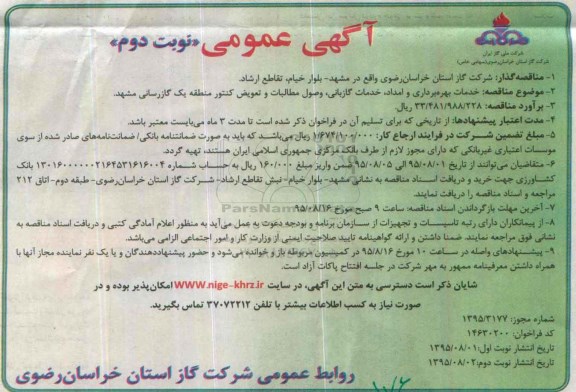 آگهی عمومی «نوبت دوم»
شرکت ملی گاز ایران
شرکت گاز استان خراسان‌رضوی (سهامی خاص)
۱- مناقصه‌گذار: شرکت گاز استان خراسان‌رضوی واقع در مشهد- بلوار خیام، تقاطع ارشاد.
۲- موضوع مناقصه: خدمات بهره‌برداری و امداد، خدمات گازبانی، وصول مطالبات و تعویض کنتور منطقه یک گازرسانی مشهد.
۳- برآورد مناقصه: ۳۳/۴۸۱/۹۸۸/۲۲۸ ریال.
۴- مدت اعتبار پیشنهادها: از تاریخی که برای تسلیم آن در فراخوان ذکر شده است تا مدت ۳ ماه می‌بایست معتبر باشد.
۵- مبلغ تضمین شرکت در فرایند ارجاع کار: ۱/۶۷۴/۱۰۰/۰۰۰ ریال می‌باشد که باید به صورت ضمانتنامه بانکی/ ضمانت‌نامه‌های صادر شده از سوی
موسسات اعتباری غیربانکی که دارای مجوز لازم از طرف بانک مرکزی جمهوری اسلامی ایران هستند، تهیه گردد.
۶- متقاضیان می‌توانند از تاریخ ۹۵/۰۸/۰۱ الی ۹۵/۰۸/۰۵ ضمن واریز مبلغ ۱۶۰/۰۰۰ ریال به حساب شماره ۰۱۳۰۱۶۰۰۰۰۰۰۲۱۶۴۵۳۱۶۱۶۰۰۴ بانک
کشاورزی جهت خرید و دریافت اسناد مناقصه به نشانی مشهد- بلوار خیام- نبش تقاطع ارشاد- شرکت گاز استان خراسان‌رضوی- طبقه دوم- اتاق ۲۱۲
مراجعه و اسناد مناقصه را دریافت نمایند.
۷- آخرین مهلت بازگرداندن اسناد مناقصه: ساعت ۹ صبح مورخ ۹۵/۰۸/۱۶.
۸- از پیمانکاران دارای رتبه تاسیسات و تجهیزات از سازمان برنامه و بودجه دعوت به عمل می‌آید به منظور اعلام آمادگی کتبی و دریافت اسناد مناقصه به
نشانی فوق مراجعه نمایند. ضمنا داشتن و ارائه گواهینامه تایید صلاحیت ایمنی از وزارت کار و امور اجتماعی الزامی می‌باشد.
۹- پیشنهادهای واصله در ساعت ۱۰ مورخ ۹۵/۸/۱۶ در کمیسیون مربوطه باز و خوانده می‌شود و حضور پیشنهاددهندگان و یا یک نفر نماینده مجاز آنها با
همراه داشتن معرفینامه ممهور به مهر شرکت در جلسه افتتاح پاکات آزاد است.
شایان ذکر است دسترسی به متن این آگهی، در سایت WWW.nige-khrz.ir امکان‌پذیر بوده و در
صورت نیاز به کسب اطلاعات بیشتر با تلفن ۳۷۰۷۲۲۱۲ تماس بگیرید.
شماره مجوز: ۱۳۹۵/۳۱۷۷
کد فراخوان: ۱۴۶۳۰۲۰۰
تاریخ انتشار نوبت اول: ۱۳۹۵/۰۸/۰۱
تاریخ انتشار نوبت دوم: ۱۳۹۵/۰۸/۰۲
روابط عمومی شرکت گاز استان خراسان‌رضوی